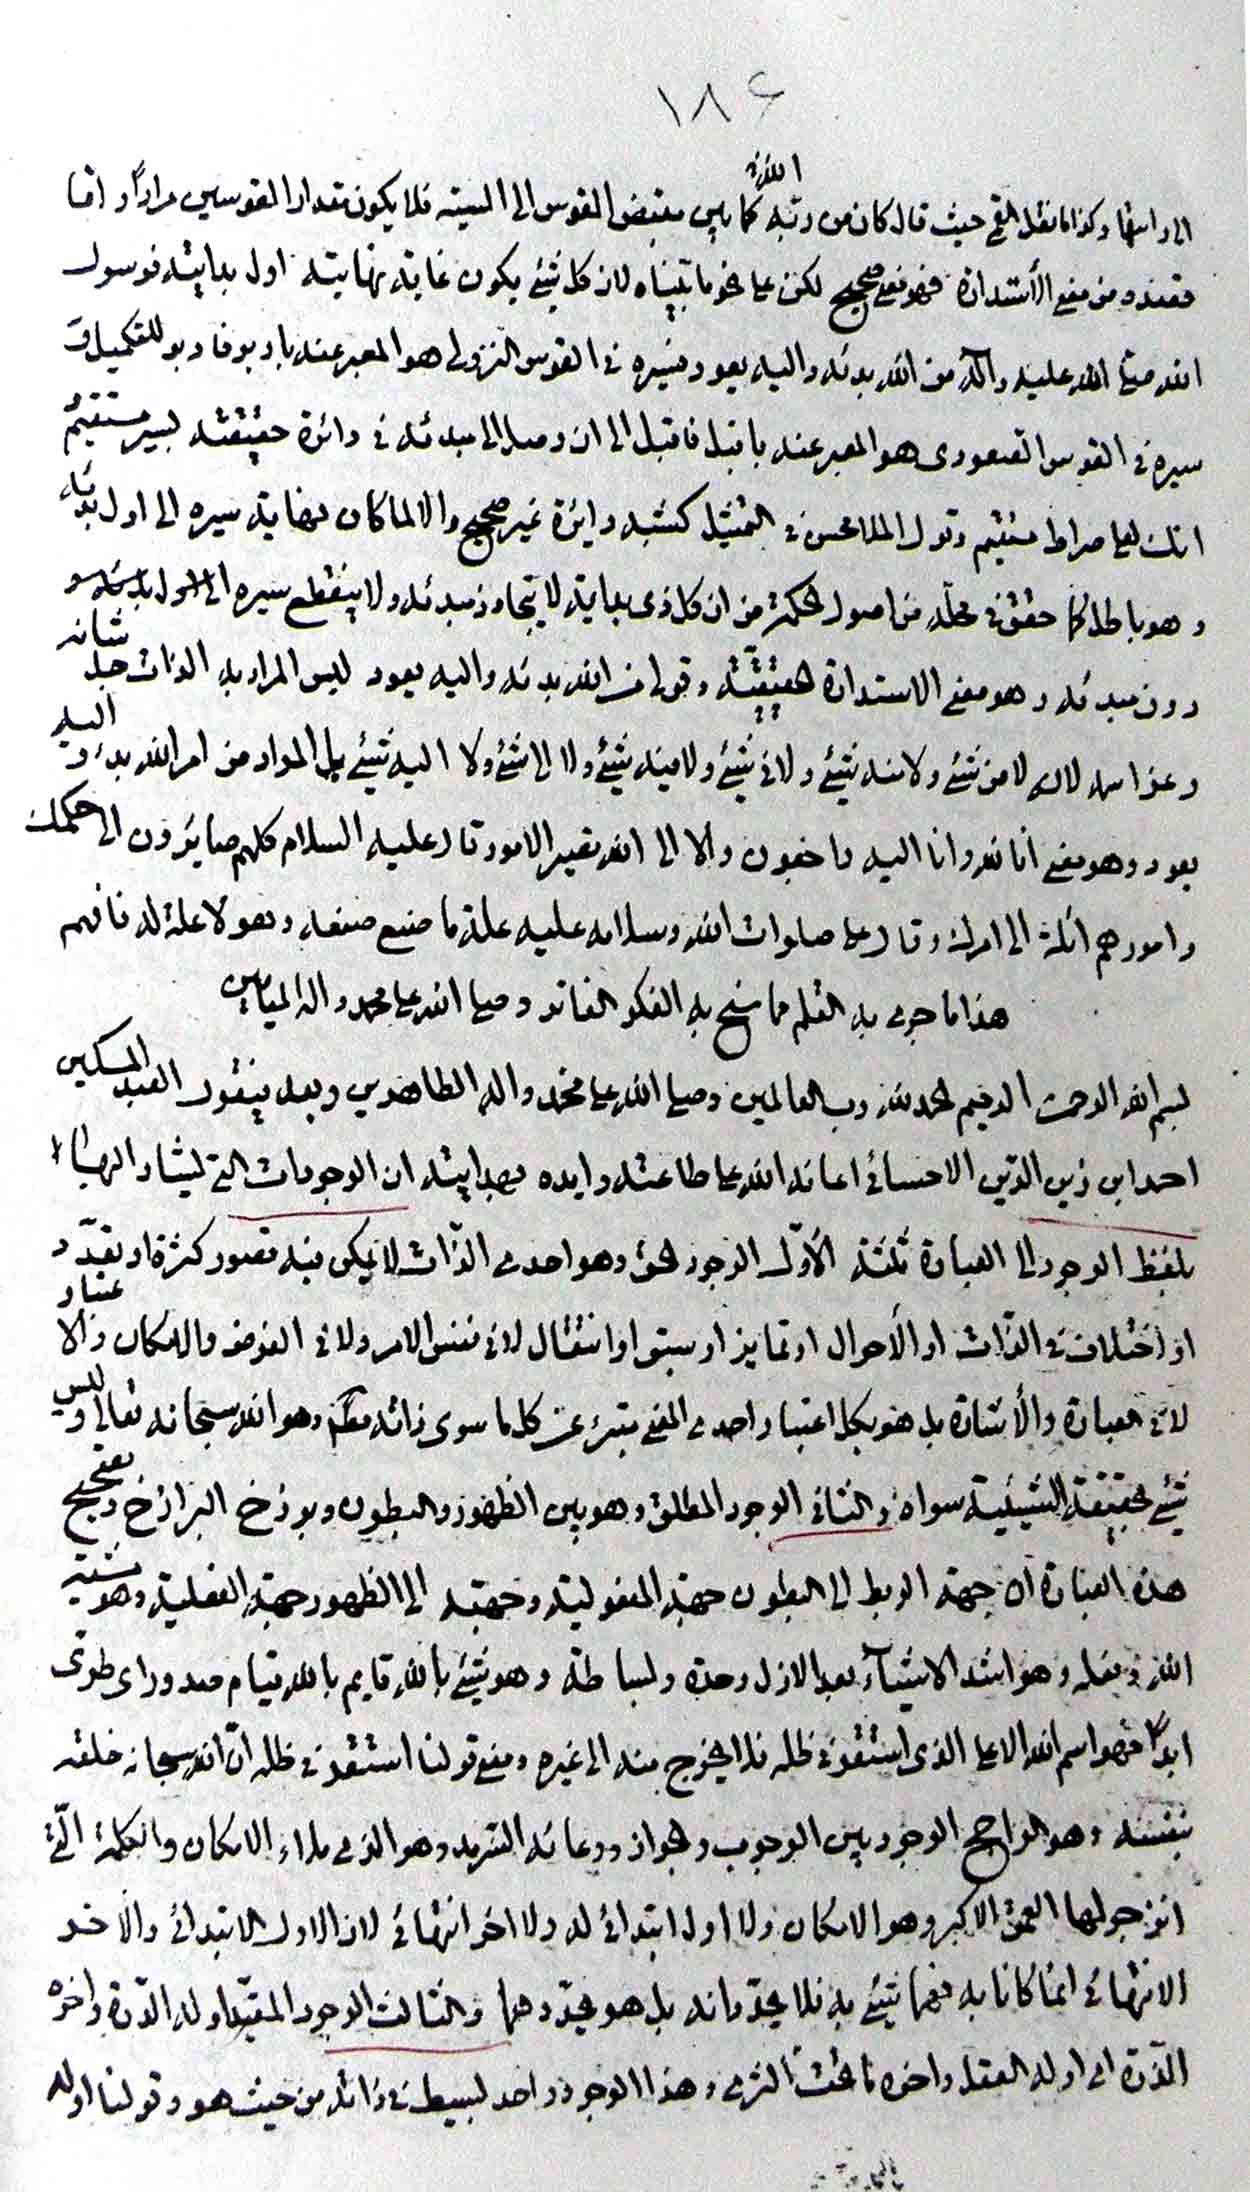 ١٨٤
الى راسها وكذا ما نقل القمي حيث قال كان من ربه كما بين مقبض القوس الى السية فلا يكون مقدار القوسين مرادا واما
فهو معنى صحيح لكن على نحو ما بيناه لان كل شيء يكون غاية نهايته اول بدايته فرسول
الله صلى الله عليه وآله من الله بدئه واليه يعود فسيره في القوس النزولي هو المعبر عنه بادبر فادبر للتكميل و
سيره في القوس الصعودي هو المعبر عنه باقبل فاقبل الى ان وصل الى مبدئه في دائرة حقيقته بسير مستقيم و
انك لعلى صراط مستقيم وقول الملا محسن في التمثيل كشبه دايرة غير صحيح والا لما كان نهاية سيره الى اول بدئه
وهو باطل كما حقق في محله من اصول الحكمة من ان كل ذي بداية لا يتجاوز مبدئه ولا ينقطع سيره
دون مبدئه وهو معنى الاستدارة الحقيقية وقولي من الله بدئه واليه يعود ليس المراد به الذات جل شانه
وعز اسمه لان لا من شيء ولا منه شيء ولا في شيء ولا فيه شيء ولا الى شيء ولا اليه شيء بل المراد من امر الله بدء و اليه
يعود وهو معنى انا لله وانا اليه راجعون والا الى الله تصير الامور قال عليه السلام كلهم صايرون الى حكمك
وامورهم آئلة الى امرك وقال علي صلوات الله وسلامه عليه علة ما صنع صنعه وهو لا علة له فافهم
هذا ما جرى به القلم مما سنح به الفكر الفاتر وصلى الله على محمد وآله الميامين
بسم الله الرحمن الرحيم الحمد لله رب العالمين وصلى الله على محمد وآله الطاهرين وبعد فيقول العبد المسكين
احمد ابن زين الدين الاحسائي اعانه الله على طاعته وايده بهدايته ان الوجودات التي يشار اليها
بلفظ الوجود في العبارة ثلثة الأول الوجود الحق وهو احدي الذات لا يمكن فيه تصور كثرة او تعدد
او اختلاف في الذات او الأحوال او تمايز او سبق او انتقال لا في نفس الامر ولا في الفرض والامكان والاعتبار
لا في العبارة والأشارة بل هو بكل اعتبار احدي المعنى مبرء عن كل ما سوى ذاته وهو الله سبحانه تعالى وليس
شيء بحقيقة الشيئية سواه والثاني الوجود المطلق وهو بين الظهور والبطون وبرزخ البرازخ وتصحيح
هذه العبارة ان جهة الربط الى البطون جهة المفعولية وجهته الى الظهور جهة الفعلية وهو مشية
الله وفعله وهو اشد الاشياء بعد الازل وحدة وبساطة وهو شيء بالله قايم بالله قيام صدور اي طرى
ابدا فهو اسم الله الاعلى الذي استقر في ظله فلا يخرج منه الى غيره ومعنى قولنا استقر في ظله ان الله سبحانه خلقه
بنفسه وهو الراجح الوجود بين الوجوب والجواز ووعائه السرمد وهو الذي ملاء الامكان والكلمة التي
انزجر لها العمق الاكبر وهو الامكان ولا اول ابتدائي له ولا اخر انتهائي لان الاول الابتدائي والآخر
الانتهائي انما كانا به فهما شيء به فلا يحدانه بل هو يحددهما والثالث الوجود المقيد اوله الدرة واخره
الذرة اي اوله العقل واخره ما تحت الثرى وهذا الوجود واحد بسيط في ذاته من حيث هو وقولنا اوله